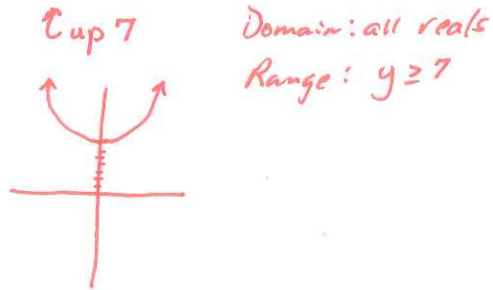 ↑ up 7
Domain: all reals
Range: y ≥ 7